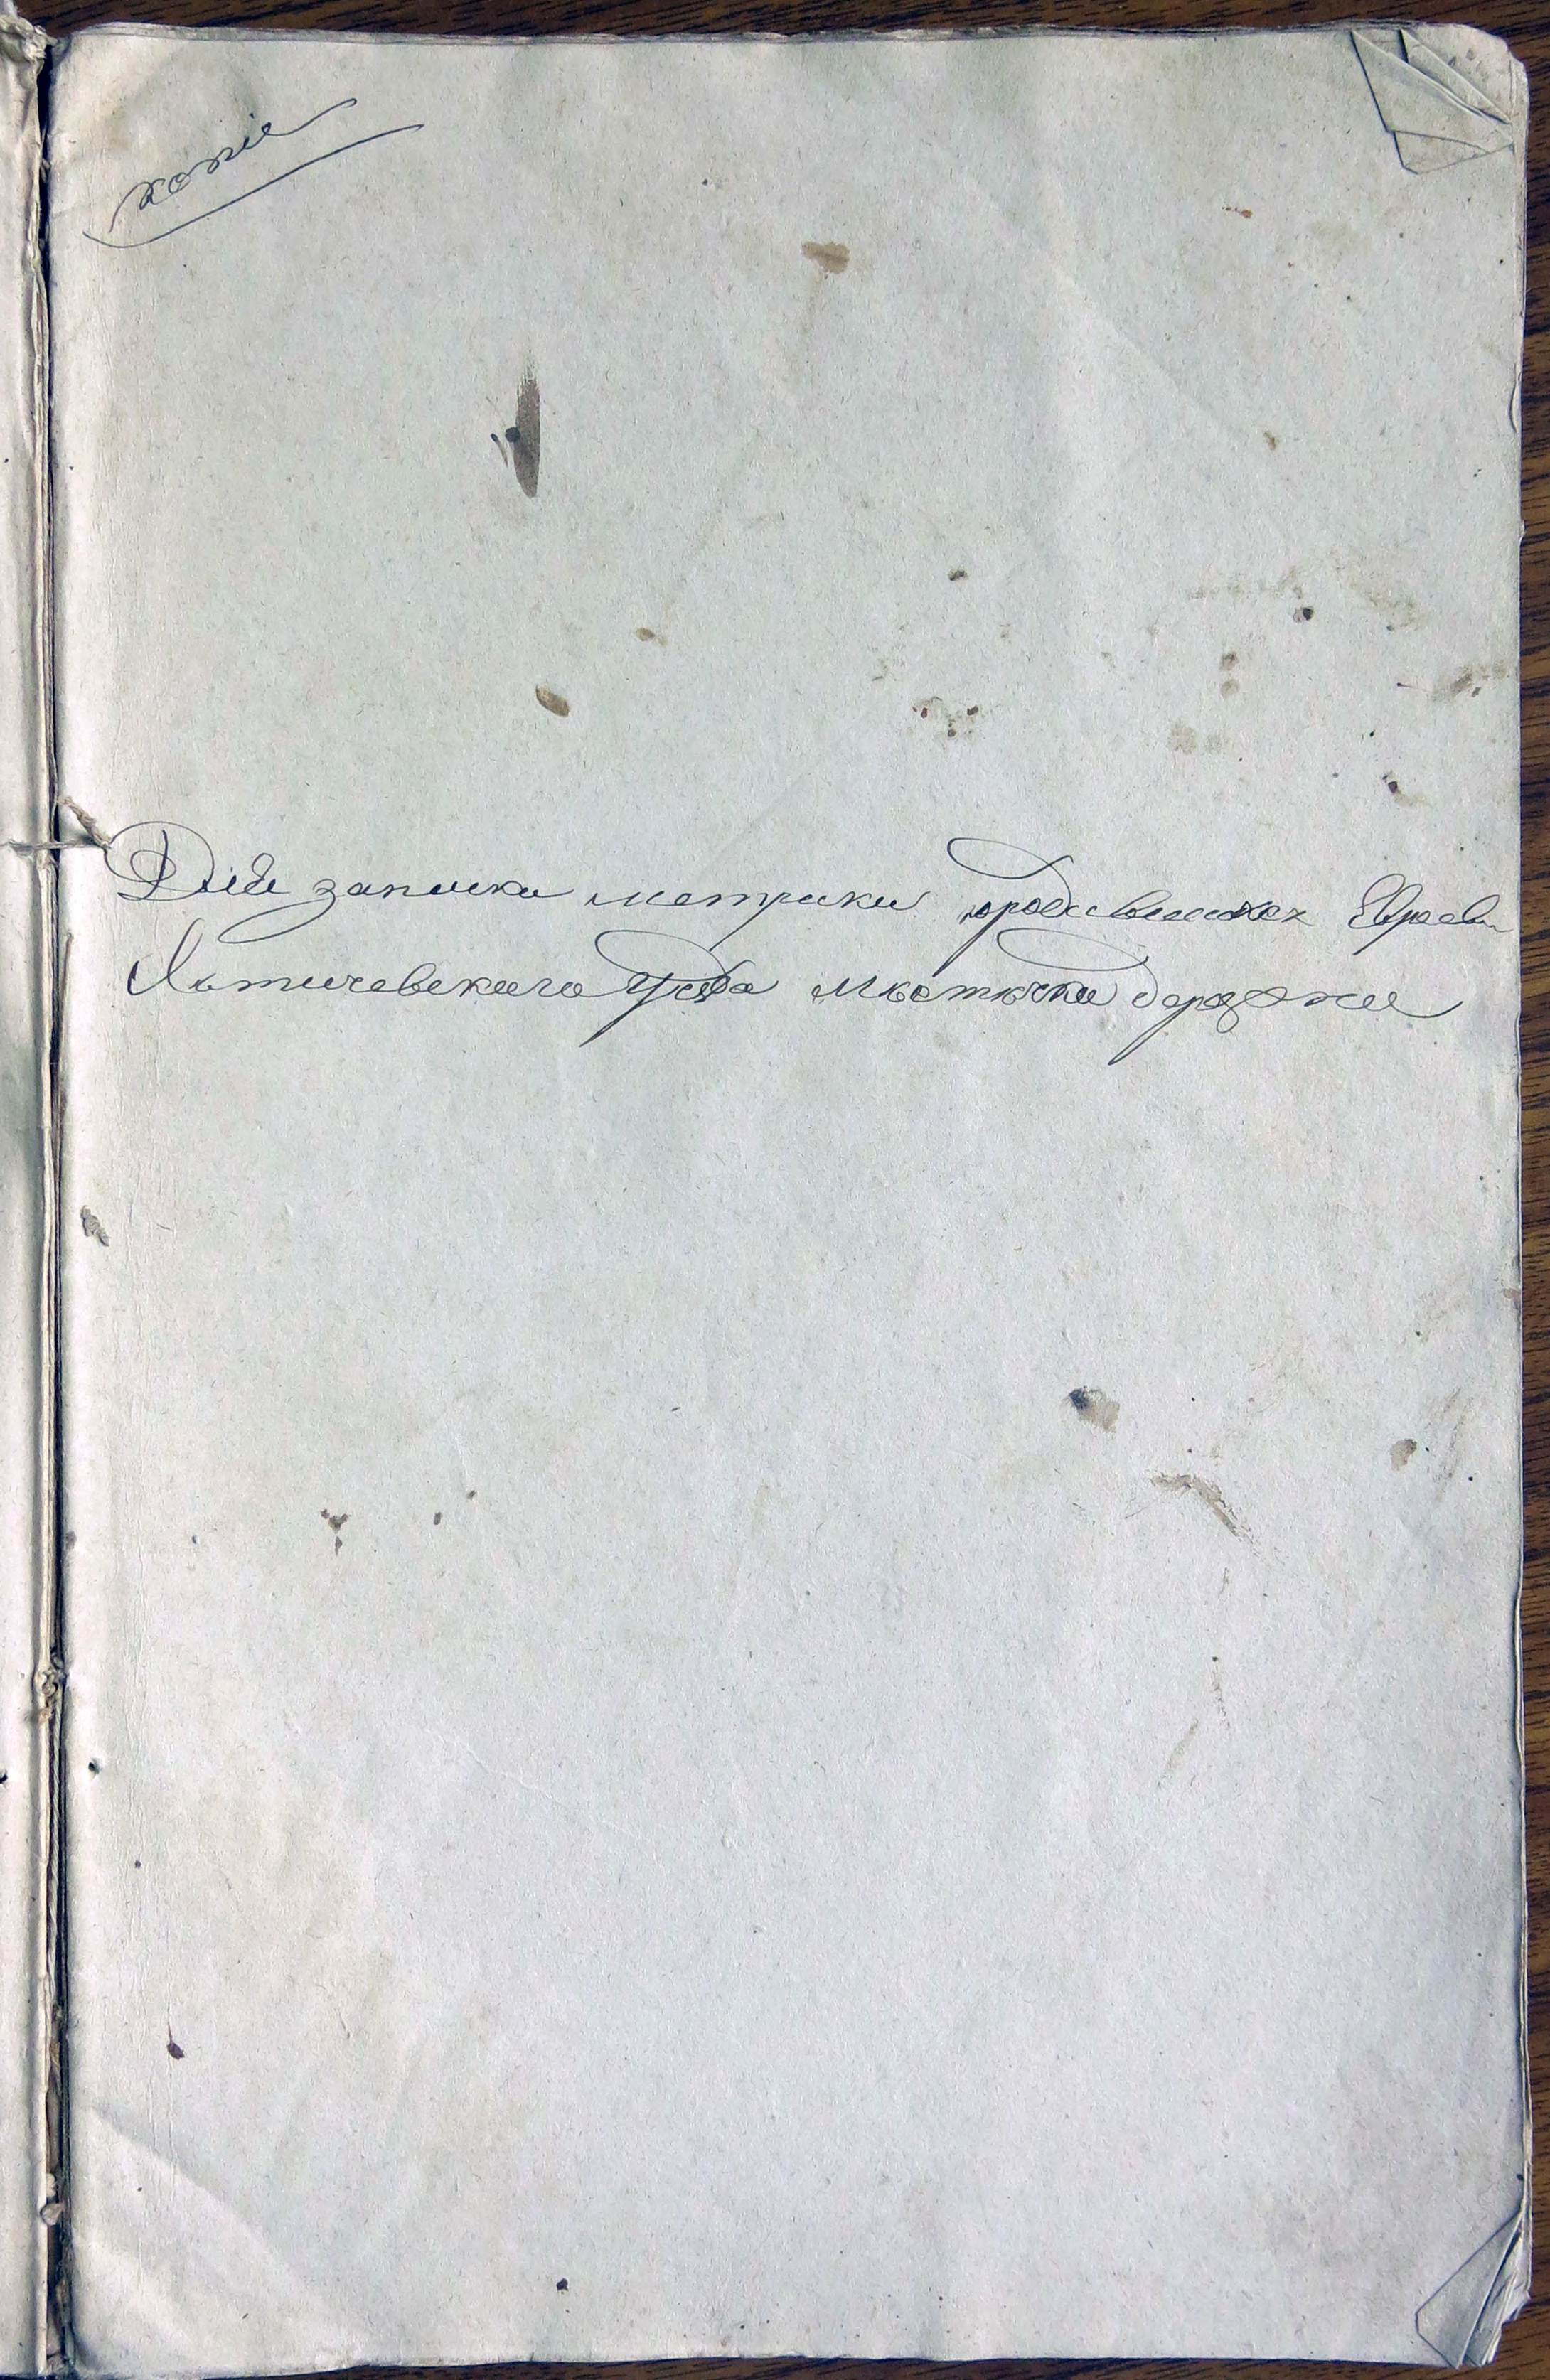 копіе
Для записки метрики родившихся Евреев
Лѣтичевскаго уѣзда мѣстечка деражни